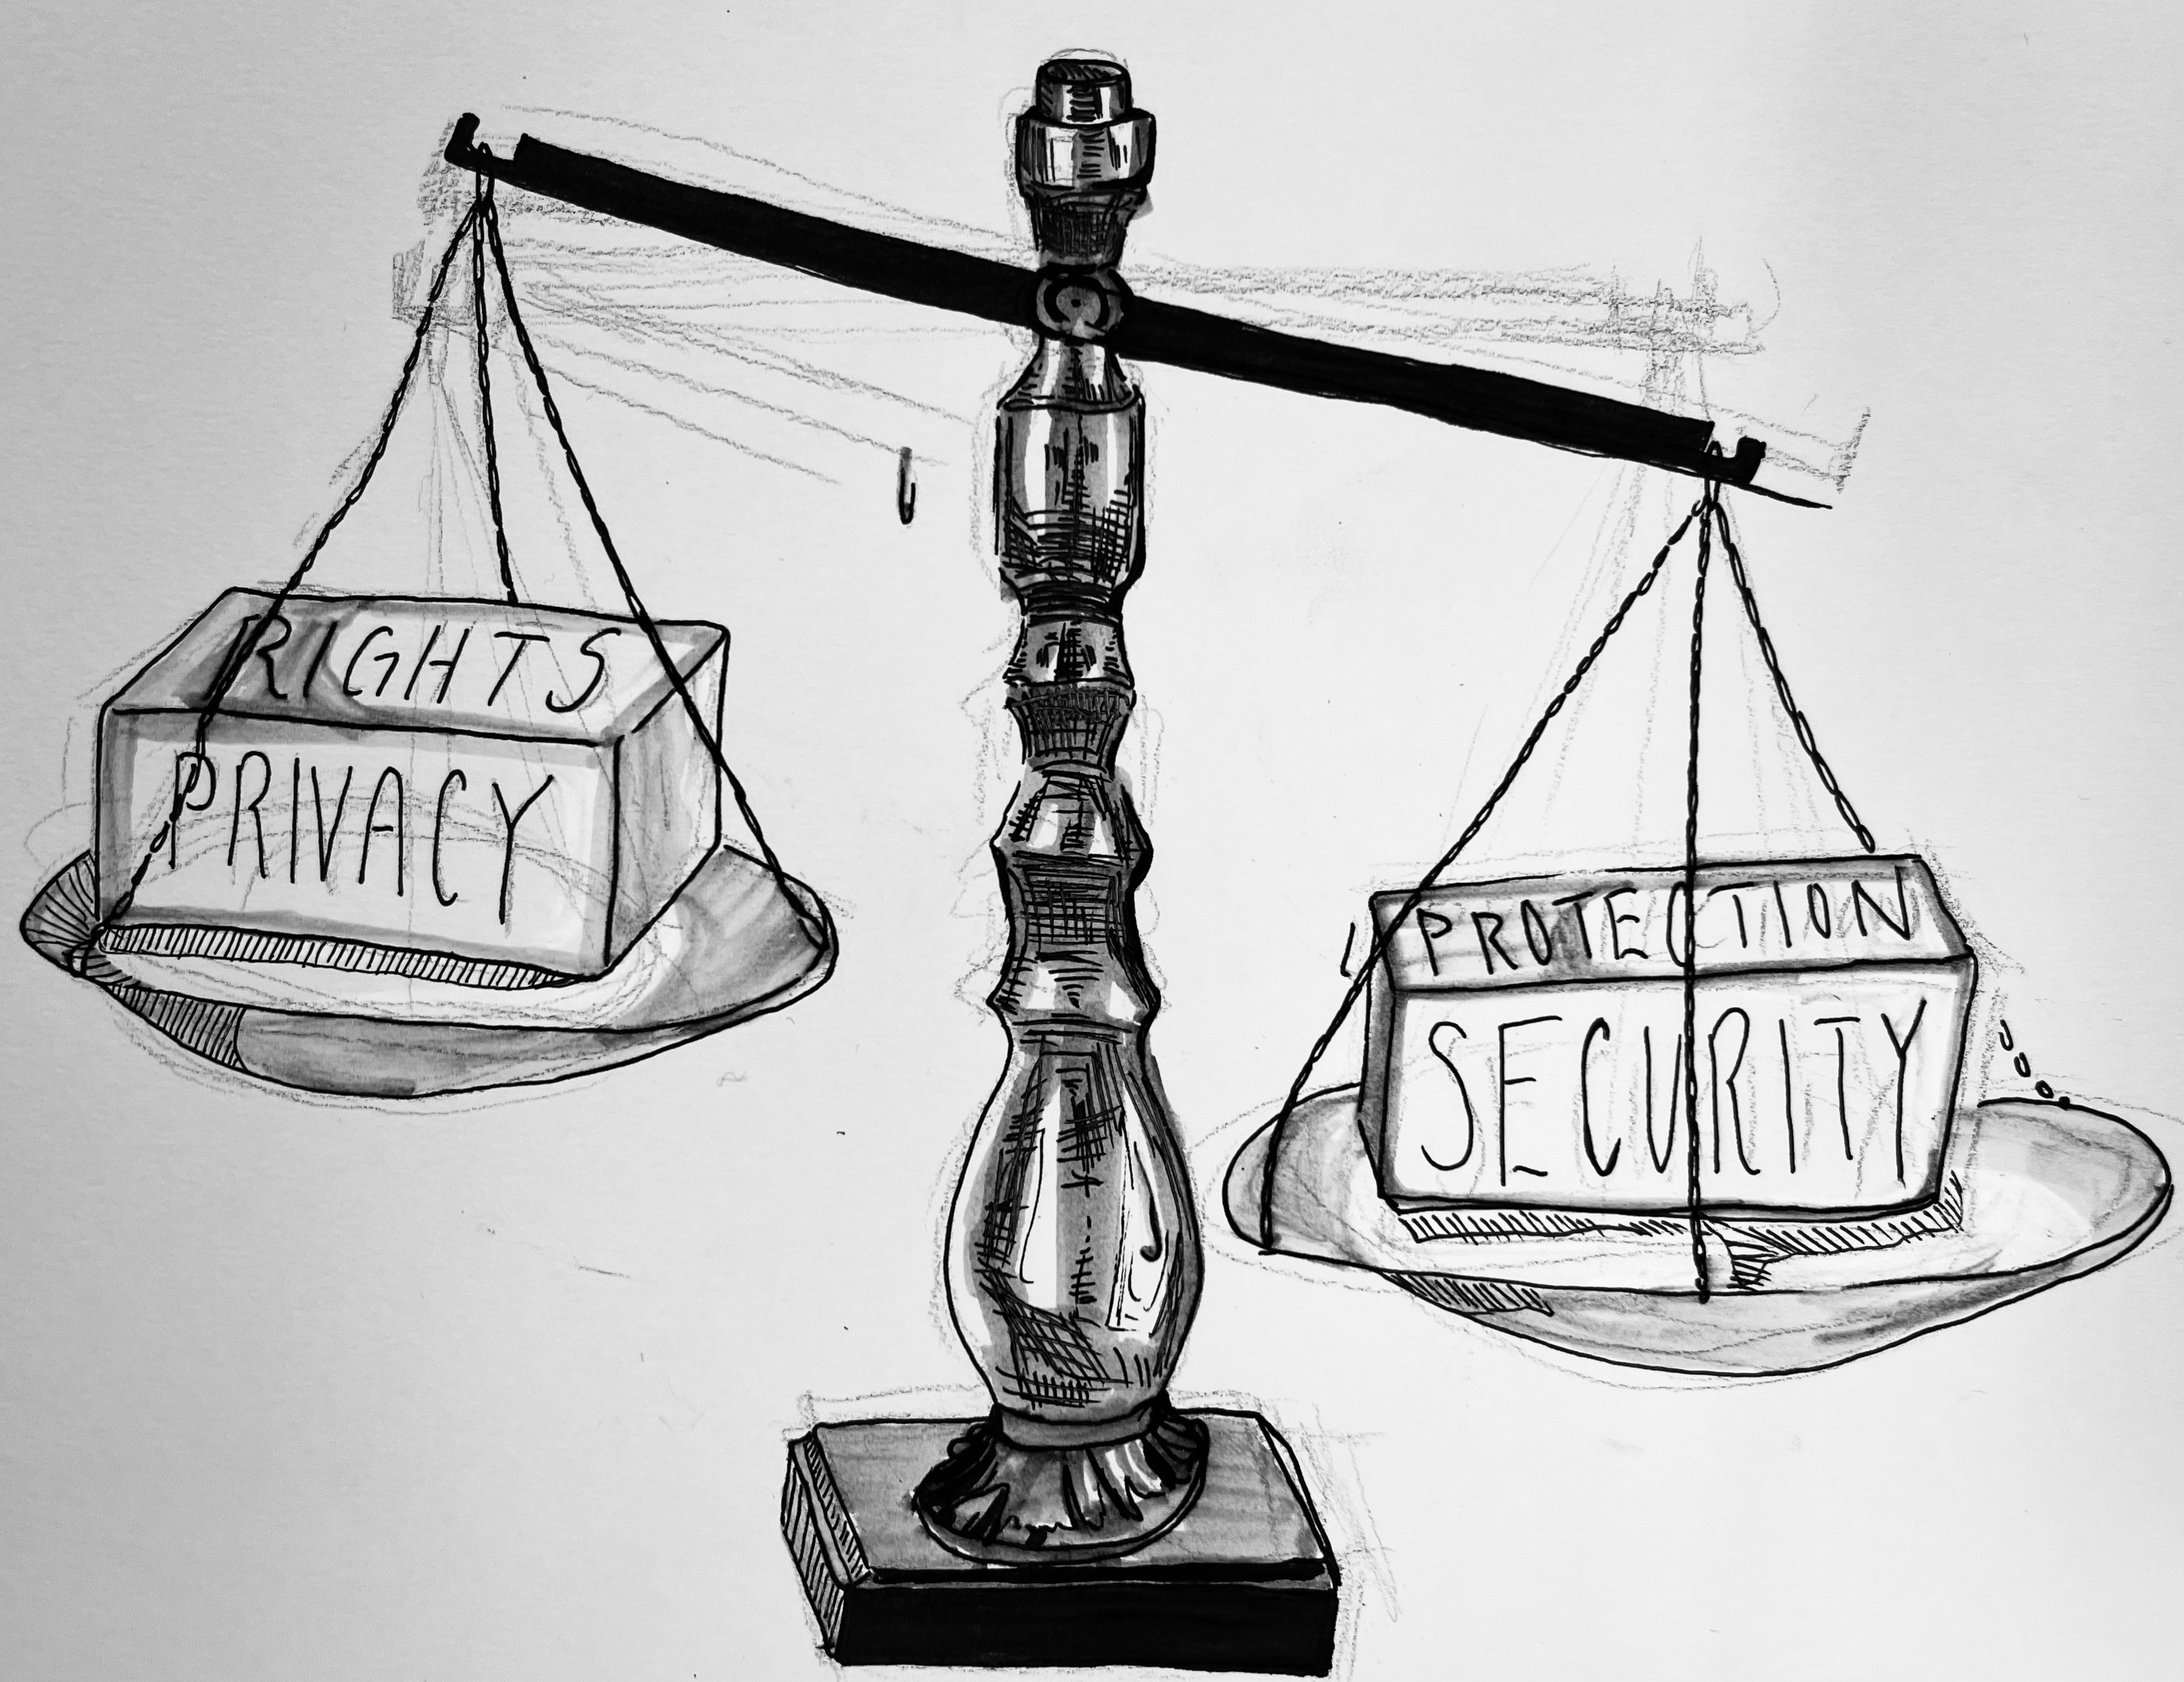 RIGHTS
PRIVACY
PROTECTION
SECURITY